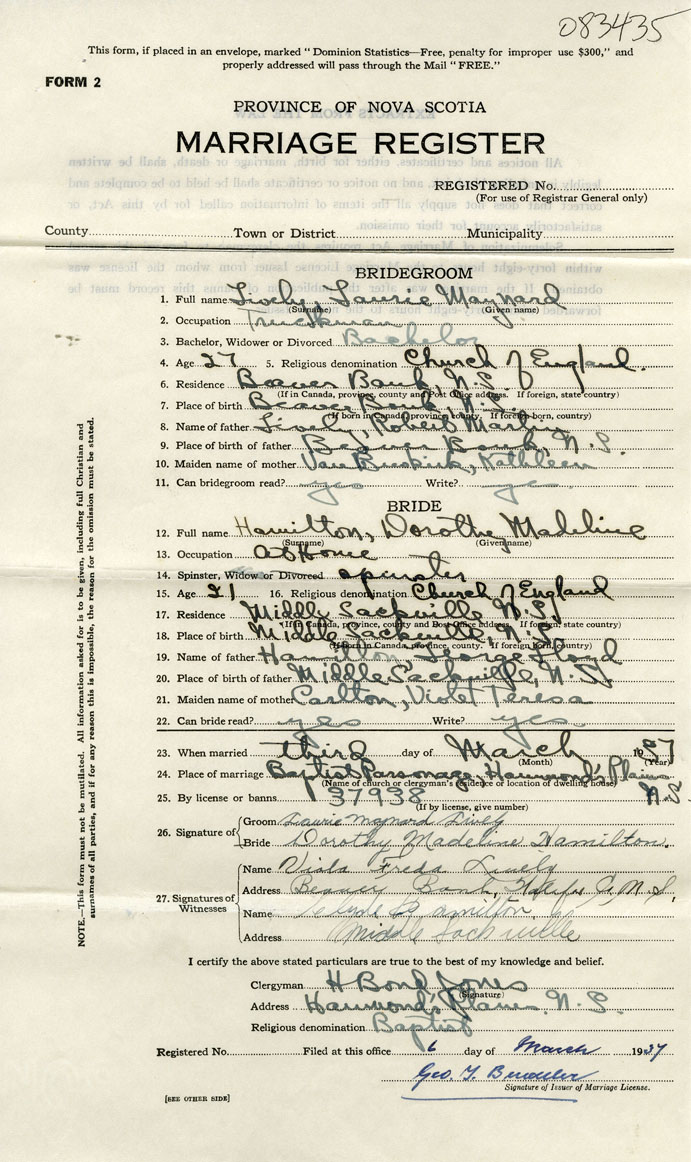 083435
This form, if placed in an envelope, marked "Dominion Statistics—Free, penalty for improper use $300," and
properly addressed will pass through the Mail "FREE."
FORM 2
PROVINCE OF NOVA SCOTIA
MARRIAGE REGISTER
REGISTERED No.
(For use of Registrar General only)
County Town or District Municipality
BRIDEGROOM
1. Full name Lively Laurie Maynard
(Surname) (Given name)
2. Occupation Truckman
3. Bachelor, Widower or Divorced Bachelor
4. Age 27 5. Religious denomination Church of England.
6. Residence Beaver Bank, N.S.
(If in Canada, province, county and Post Office address. If foreign, state country)
7. Place of birth Beaver Bank, N.S.
(If born in Canada, province, county. If foreign born, country)
8. Name of father Lively, Robert Martin
9. Place of birth of father Beaver Bank, N.S.
10. Maiden name of mother Van Buskirk, Kathleen
11. Can bridegroom read? yes Write? yes
BRIDE
12. Full name Hamilton, Dorothy Madeline
(Surname) (Given name)
13. Occupation At Home
14. Spinster, Widow or Divorced spinster
15. Age 21 16. Religious denomination Church of England
17. Residence Middle Sackville N.S.
(If in Canada, province, county and Post Office address. If foreign, state country)
18. Place of birth Middle Sackville, N.S.
(If born in Canada, province, county. If foreign born, country)
19. Name of father Hamilton, George Lloyd
20. Place of birth of father Middle Sackville, N.S.
21. Maiden name of mother Carlton, Violet Teresa
22. Can bride read? yes Write? yes
23. When married third day of March 1937
(Month) (Year)
24. Place of marriage Baptist Parsonage, Hammond's Plains
(Name of church or clergyman's residence or location of dwelling house)
N.S.
25. By license or banns 137938
(If by license, give number)
26. Signature of
Groom Laurie Maynard Lively
Bride Dorothy Madeline Hamilton.
27. Signatures of Witnesses
Name Viola Freda Lively
Address Beaver Bank, Halifax Co, N.S,
Name Hamilton
Address Middle Sackville
I certify the above stated particulars are true to the best of my knowledge and belief.
Clergyman H Bond Jones
(Signature)
Address Hammond's Plains N.S.
Religious denomination Baptist
Registered No. Filed at this office 6 day of March 1937
Geo. T.
Signature of Issuer of Marriage License.
[SEE OTHER SIDE]
NOTE.—This form must not be mutilated. All information asked for is to be given, including full Christian and
surnames of all parties, and if for any reason this is impossible, the reason for the omission must be stated.